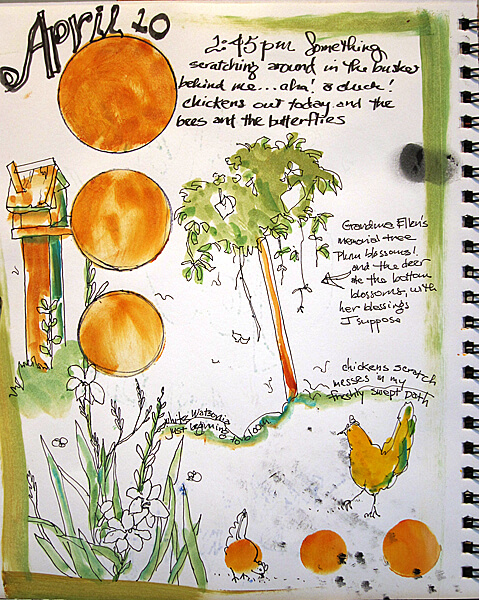 April 10
2:45pm Something
scratching around in the bushes
behind me...aha! a duck!
chickens out today and the
bees and the butterflies
Grandma Ellen's
memorial tree
Plum blossoms!
and the deer
ate the bottom
blossoms, with
her blessings
I suppose
chickens scratch
messes in my
freshly swept path
white Watsonia
just beginning to bloom